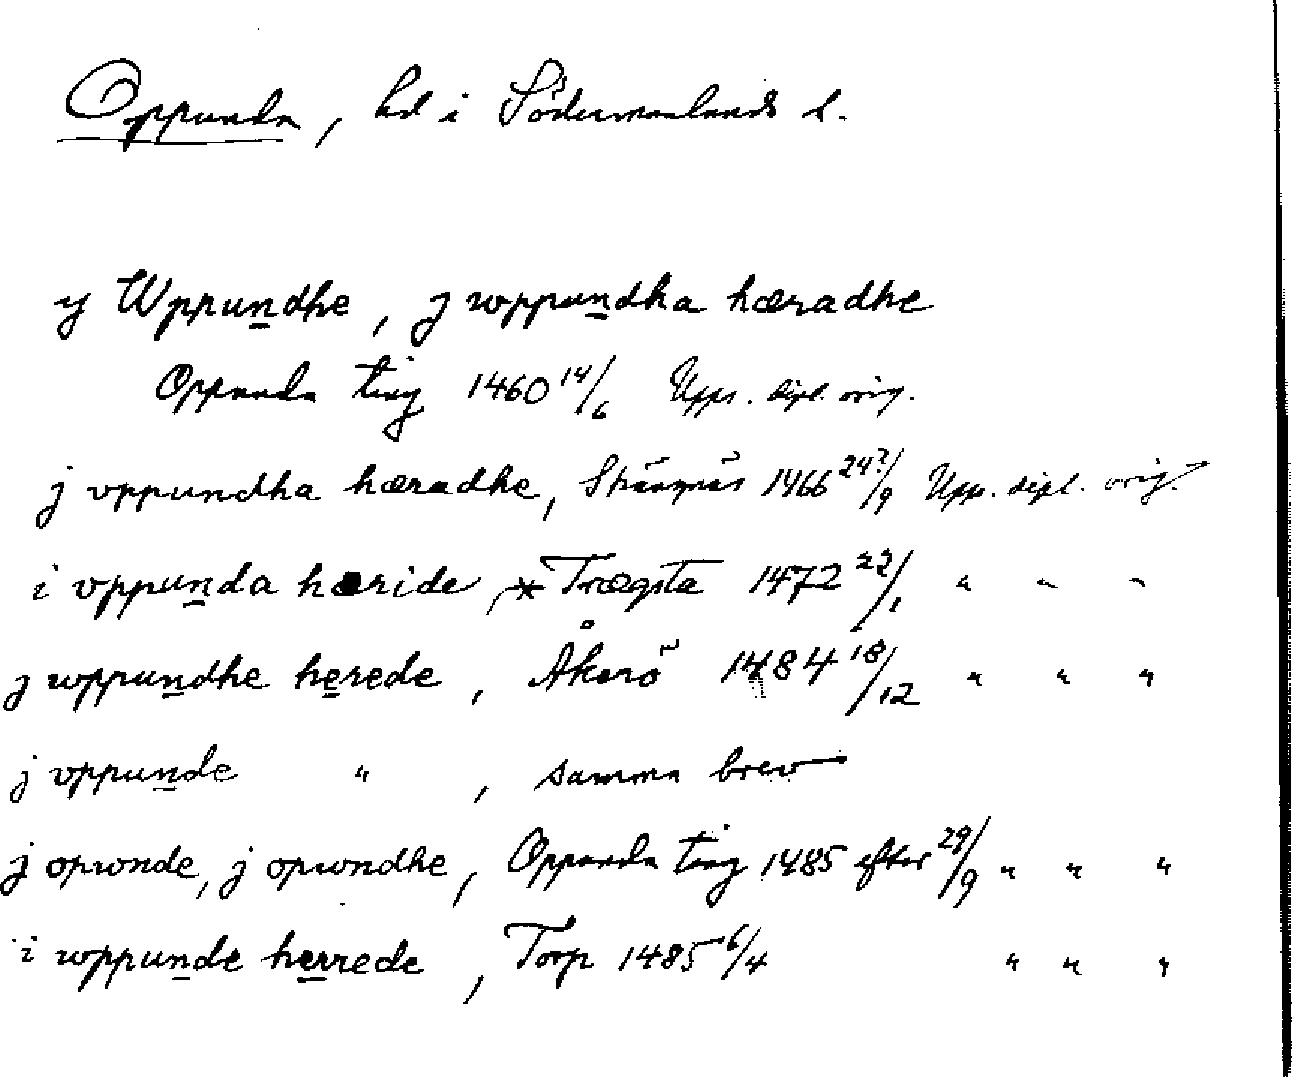 Oppunda, hd i Södermanlands l.
y Wppundhe, j wppundha hæradhe
Oppunda ting 1460 14/6 Upps. dipl. orig.
j vppundha hæradhe, 1466 24?/9 Upps. dipl. orig.
i vppunda hæride, * Trægsta 1472 22/1 " " "
j wppundhe herede, Åkerö 1484 18/12 " " "
j vppunde " , samma brev
j opwnde, j opwndhe, Oppunda ting 1485 efter 29/9 " " "
i wppunde herrede, Torp 1485 6/4 " " "